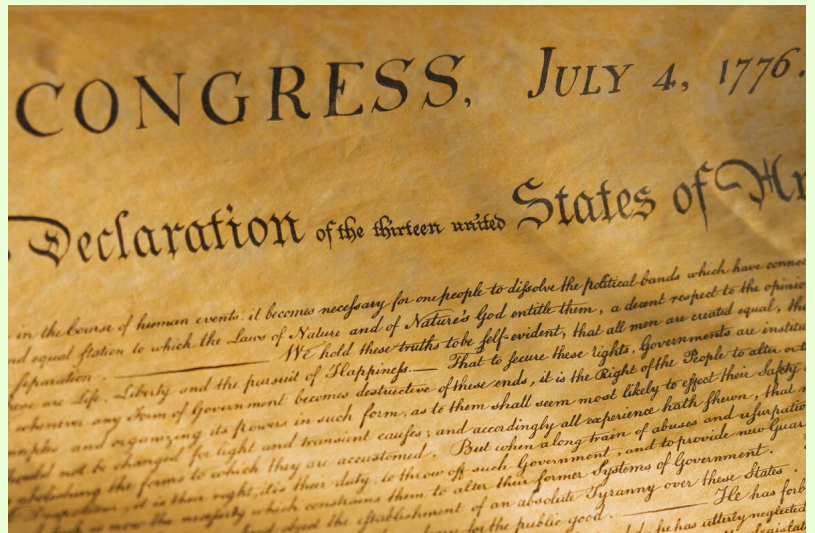 CONGRESS, JULY 4, 1776.
Declaration of the thirteen united States of
in the Course of human events, it becomes necessary for one people to dissolve the political bands which have
equal station to which the Laws of Nature and of Nature's God entitle them, a decent respect to the
separation. We hold these truths to be self-evident, that all men are created equal,
are Life, Liberty and the pursuit of Happiness. — That to secure these rights, Governments are
whenever any Form of Government becomes destructive of these ends, it is the Right of the People to alter or
and organizing its powers in such form, as to them shall seem most likely to effect their Safety
not be changed for light and transient causes; and accordingly all experience hath shewn, that
abolishing the forms to which they are accustomed. But when a long train of abuses and usurpations
it is their right, it is their duty, to throw off such Government, and to provide new
now the necessity which constrains them to alter their former Systems of Government.
object the establishment of an absolute Tyranny over these States.
for the public good. He has
he has utterly neglected